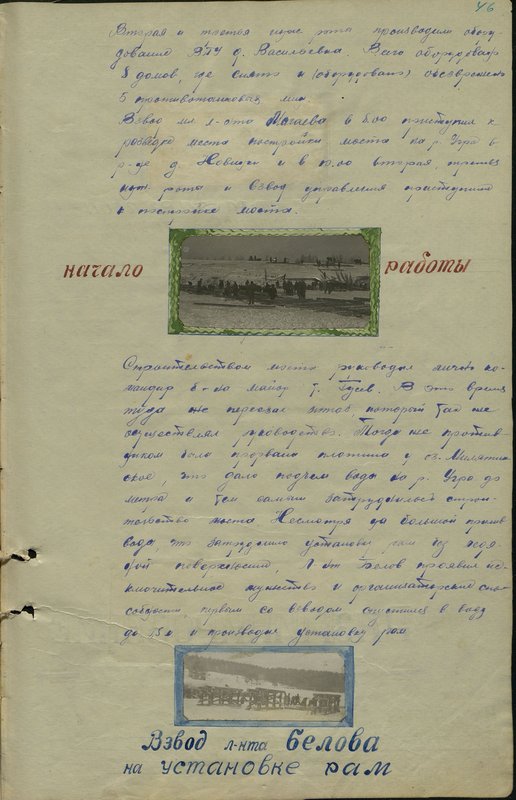 46
Вторая и третья инж рота производили обору-
дование ВПУ д. Васильевка Всего оборудовав
8 домов, где снято и (оборудовано) обезврежено
5 противотанковых мин.
Взвод мл л-нта Могаева в 6.00 приступил к
разведке места постройки моста на р. Угра в
р-не д. Новики и в 10.00 вторая третья
инж. рота и взвод управления приступили
к постройке моста.
начало работы
Строительством моста руководил лично ко-
мандир б-на майор т. Гусев. В это время
туда же переехал штаб, который там же
осуществлял руководство. Тогда же против-
ником была прорвана плотина у оз. Милятин-
ское, это дало подъем воды на р. Угра до
метра и тем самым затруднялось строи-
тельство моста. Несмотря на большой прилив
воды, что затрудняло установку рам
поверхностью. Л-нт Белов проявил ис-
ключительное мужество и организаторские спо-
собности, первым со взводом спустился в воду
до 1,5 м и производил установку рам
Взвод л-нта Белова
на установке рам